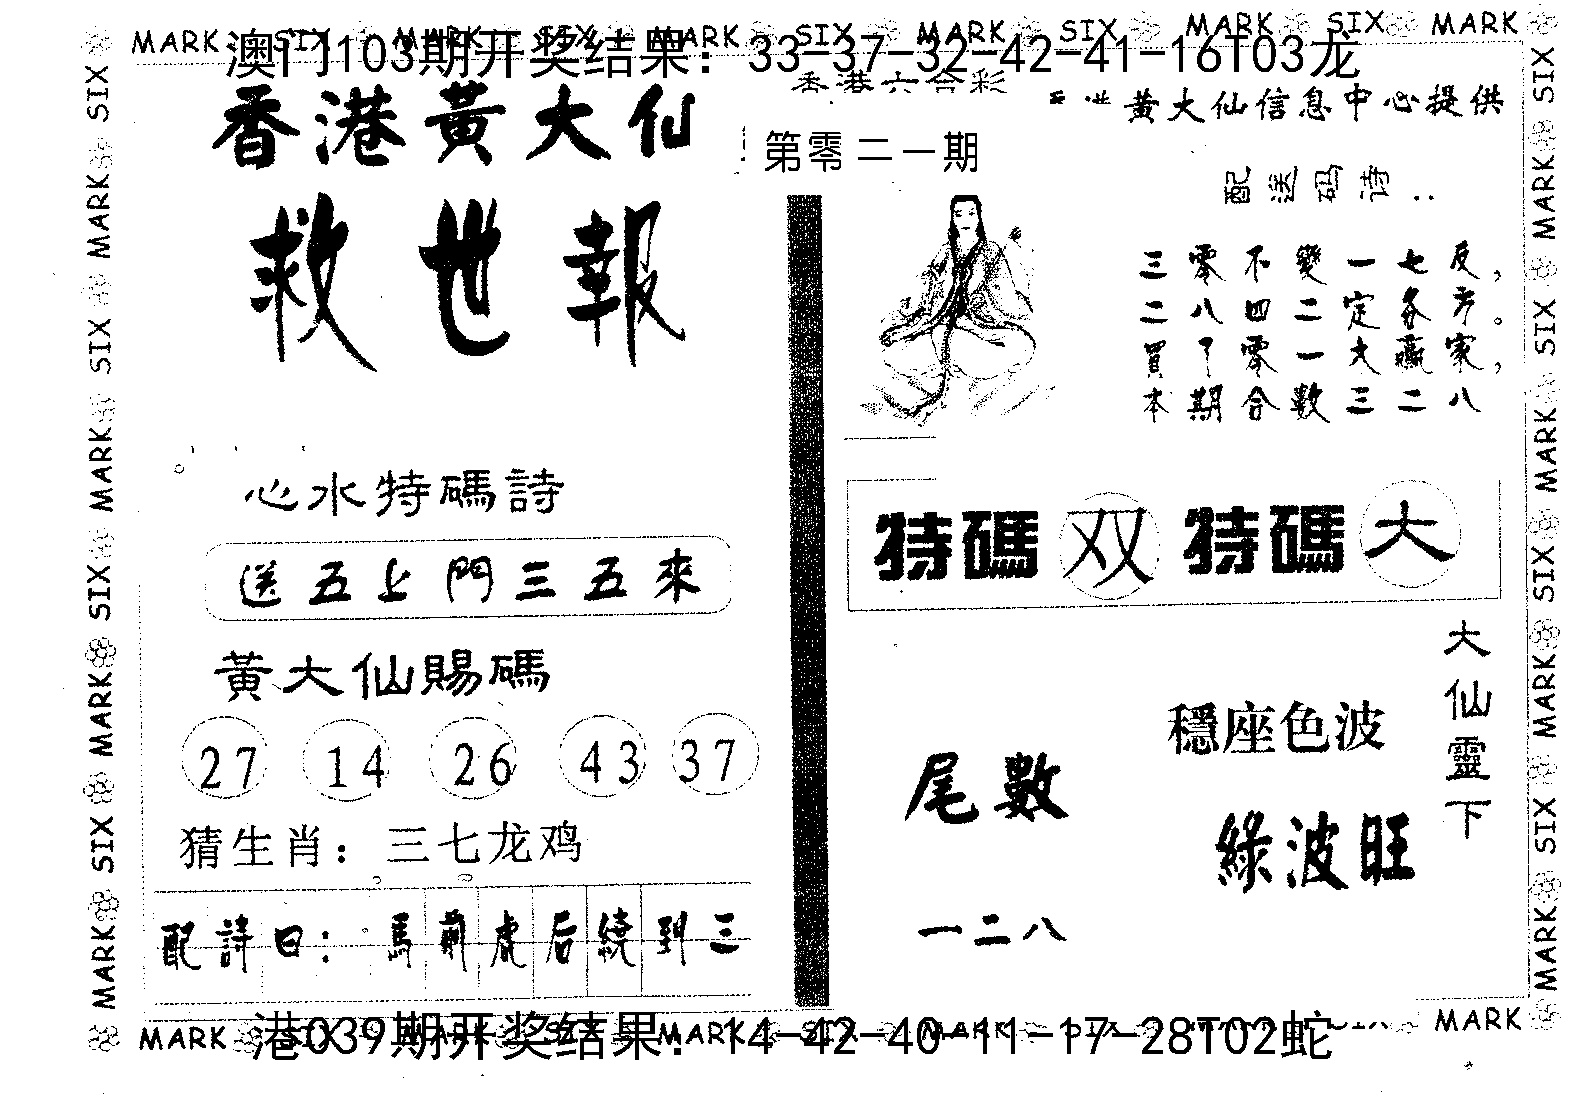 MARK SIX MARK SIX MARK SIX MARK SIX MARK SIX MARK
澳门103期开奖结果：33-37-32-42-41-16T03龙
香港六合彩
黃大仙信息中心提供
香港黃大仙
第零二一期
救世報
配送码诗：
三零不變一七反，
二八四二定各方。
買了零一大贏家，
本期合數三二八
心水特碼詩
送五上門三五來
特碼双 特碼大
黃大仙賜碼
27 14 26 43 37
猜生肖：三七龙鸡
配詩曰：馬前虎后繞到三
大仙靈下
穩座色波
綠波旺
尾數
一二八
MARK SIX MARK SIX MARK SIX MARK SIX MARK SIX MARK
港039期开奖结果：14-42-40-11-17-28T02蛇